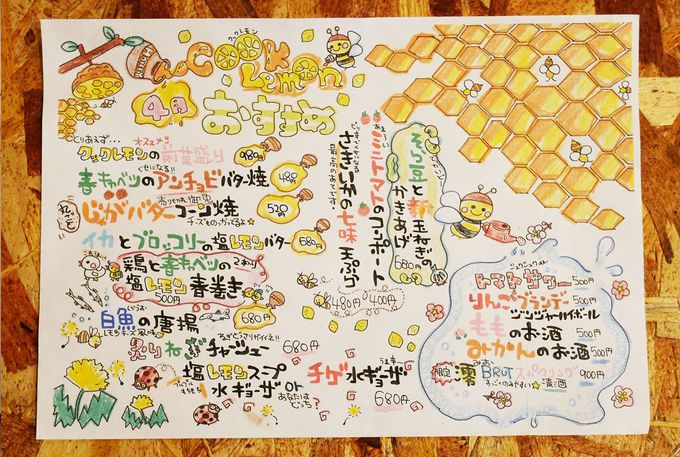 クックレモン
Cook
Lemon
HONEY
4月
おすすめ
とりあえず… オススメ!!
クックレモンの前菜盛り 980円
クセになる!!
春キャベツのアンチョビバター焼 480
じゃがバターコーン焼 520円
チーズものっかってるよ☆
イカとブロッコリーの塩レモンバター 680円
鶏と春キャベツの
塩レモン春巻き
500円
白魚の唐揚 680円
炙りねぎチャーシュー 680円
塩レモンスープ
水ギョーザ or
あなたはどっち?
チゲ水ギョーザ
680円
そら豆と新玉ねぎの
かきあげ
680円
ミニトマトのコンポート
400円
さきいかの七味天ぷら
480円
トマトサワー 500円
りんごブランデー
ジンジャーハイボール 500円
もものお酒 500円
みかんのお酒 500円
みお
澪 BRUT スパークリング
清酒 900円